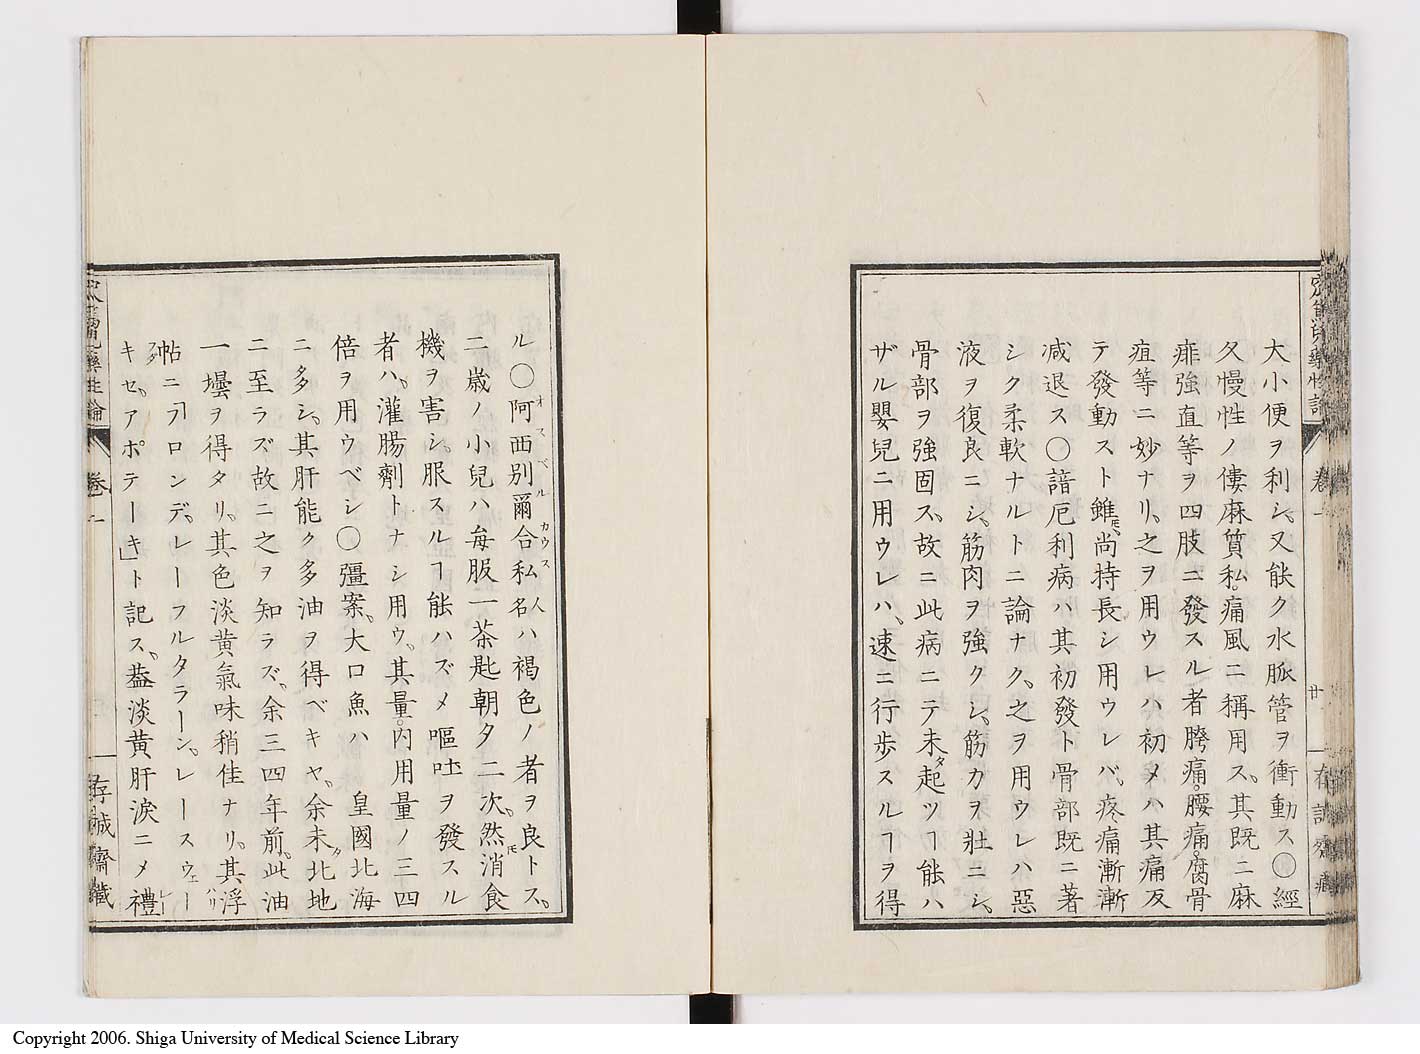 大小便ヲ利シ、又能ク水脈管ヲ衝動ス〇經
久慢性ノ僂麻質私。痛風ニ稱用ス、其既ニ麻
痺強直等ヲ四肢ニ發スル者胯痛。腰痛。腐骨
疽等ニ妙ナリ、之ヲ用ウレハ初メハ其痛反
テ發動スト雖モ、尚持長シ用ウレバ、疼痛漸漸
減退ス〇諳厄利病ハ其初發ト骨部既ニ著
シク柔軟ナルトニ論ナク、之ヲ用ウレハ惡
液ヲ復良ニシ、筋肉ヲ強クシ、筋力ヲ壯ニシ、
骨部ヲ強固ス、故ニ此病ニテ未タ起ツヿ能ハ
ザル嬰兒ニ用ウレハ、速ニ行歩スルヿヲ得
卷一
廿
ル〇阿西別爾合私人名ハ褐色ノ者ヲ良トス、
オスベルカウス
二歳ノ小兒ハ毎服一茶匙朝夕二次、然モ消食
機ヲ害シ、服スルヿ能ハズメ嘔吐ヲ發スル
者ハ、灌腸劑トナシ用ウ、其量。内用量ノ三四
倍ヲ用ウベシ〇彊案、大口魚ハ 皇國北海
ニ多シ、其肝能ク多油ヲ得ベキヤ、余未ダ北地
ニ至ラズ故ニ之ヲ知ラズ、余三四年前、此油
一壜ヲ得タリ、其色淡黄氣味稍佳ナリ、其浮
帖ニ「フロンデ、レーフルタラーン、レースウェー
キセ、アポテーキ」ト記ス、蓋淡黄肝涙ニメ禮
卷一
存誠齋藏